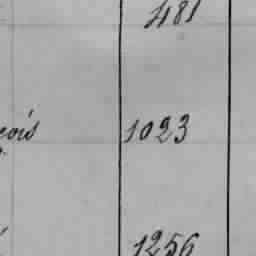 481
çois 1023
1256